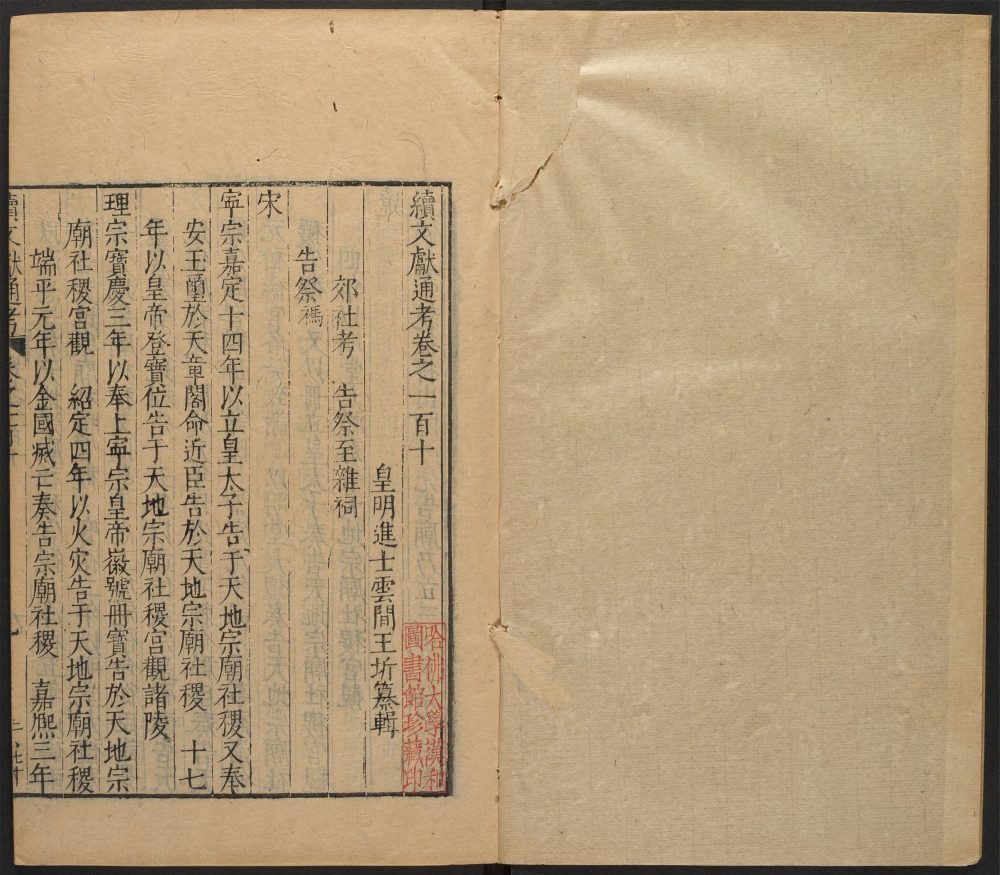 續文獻通考卷之一百十
皇明進士雲間王圻纂輯
郊社考　告祭至雜祠
告祭禡
宋
寧宗嘉定十四年以立皇太子告于天地宗廟社稷又奉
安玉璽於天章閣命近臣告於天地宗廟社稷　十七
年以皇帝登寶位告于天地宗廟社稷宮觀諸陵
理宗寶慶三年以奉上寧宗皇帝徽號冊寶告於天地宗
廟社稷宮觀　紹定四年以火灾告于天地宗廟社稷
端平元年以金國滅亡奏告宗廟社稷　嘉熙三年
續文獻通考
哈佛大學漢和
圖書館珍藏印